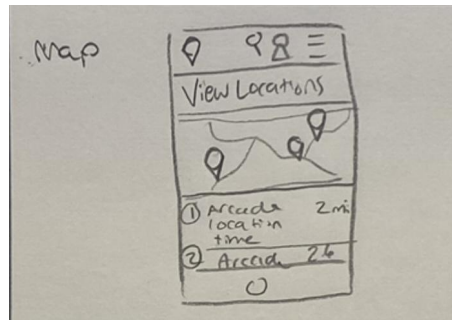 Map
View Locations
① Arcade 2 mi
location
time
② Arcade 2.6